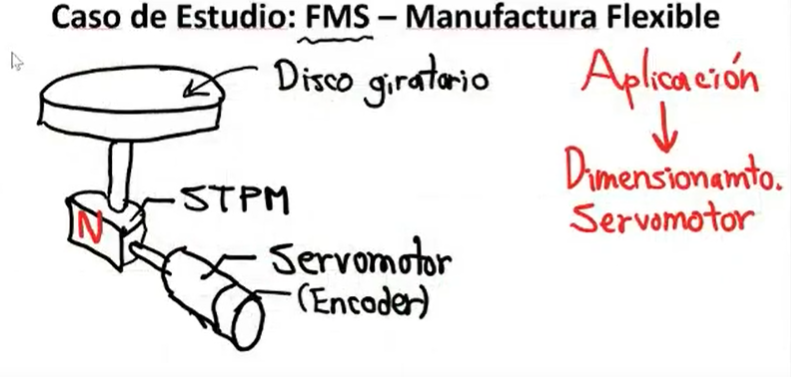 Caso de Estudio: FMS – Manufactura Flexible
Disco giratorio
STPM
N
Servomotor
(Encoder)
Aplicación
Dimensionamto.
Servomotor